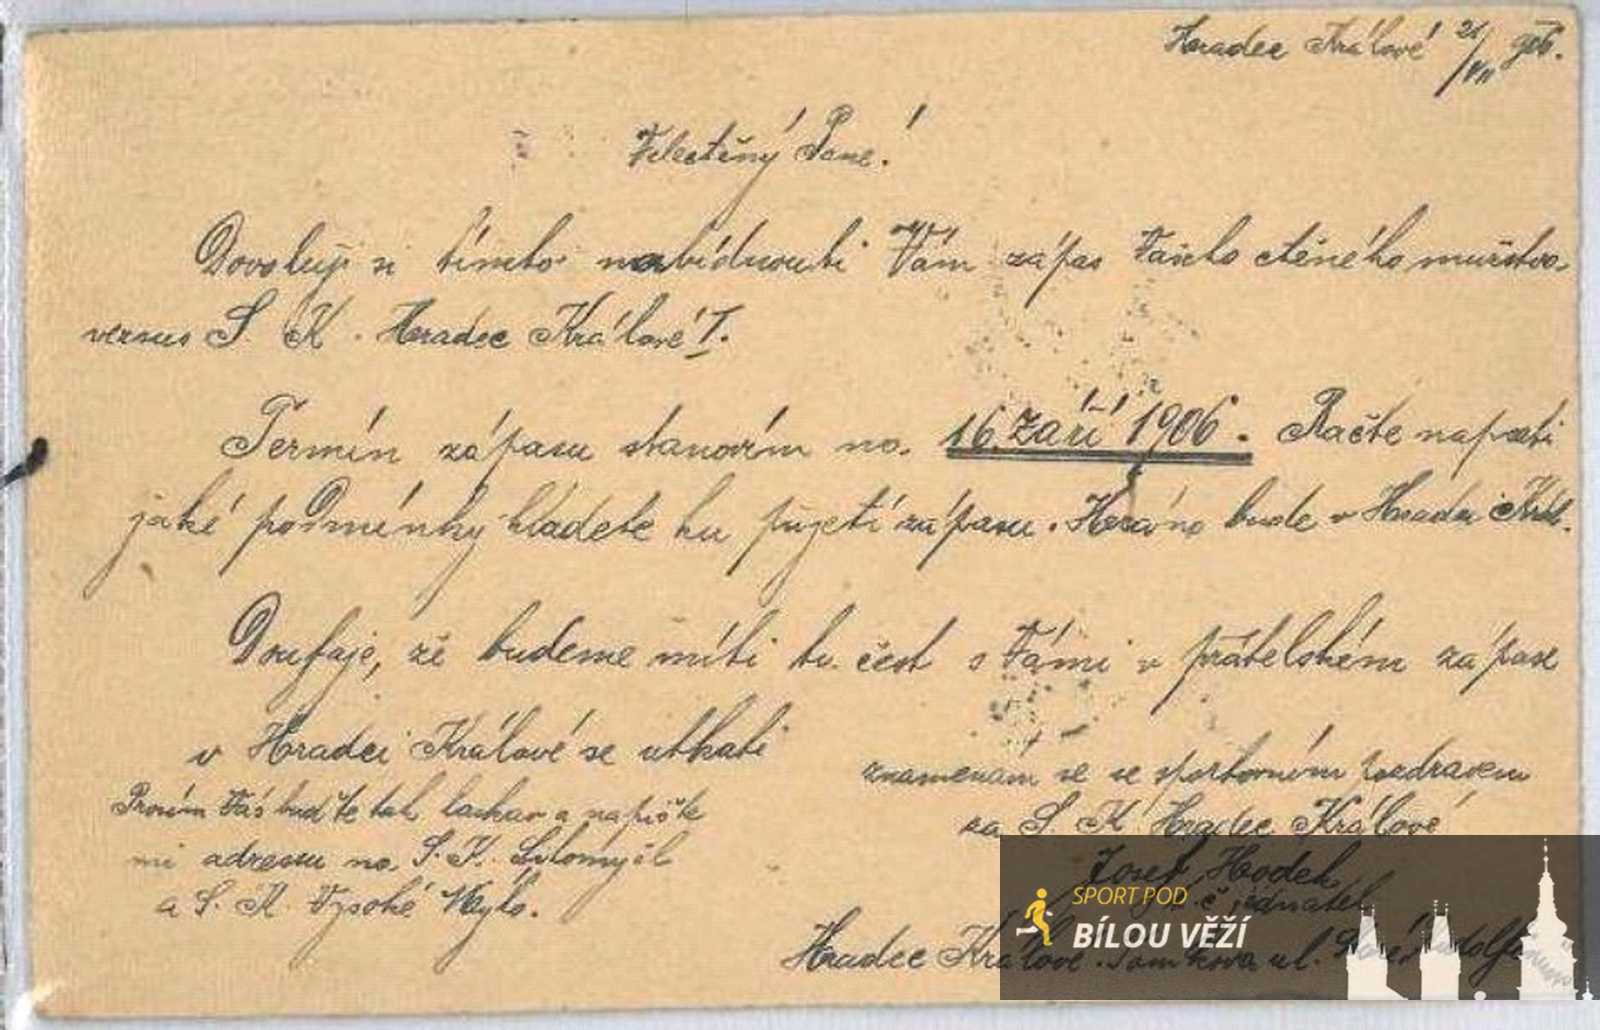 Hradec Králové 21/VIII 906.
Velectěný Pane!
Dovoluji si tímto nabídnouti Vám zápas Vašeho ctěného mužstva
versus S. K. Hradec Králové I.
Termín zápasu stanovím na 16. září 1906. Račte napsati
jaké podmínky kladete ku přijetí zápasu. Hráno bude v Hradci Král.
Doufaje, že budeme míti tu čest s Vámi v přátelském zápase
v Hradci Králové se utkati
znamenám se se sportovním pozdravem
za S. K. Hradec Králové
Josef Hodek
t. č. jednatel
Hradec Králové. Tomkova ul.
Prosím Vás buďte tak laskav a napište
mi adresu na S. K. Litomyšl
a S. K. Vysoké Mýto.
SPORT POD
BÍLOU VĚŽÍ